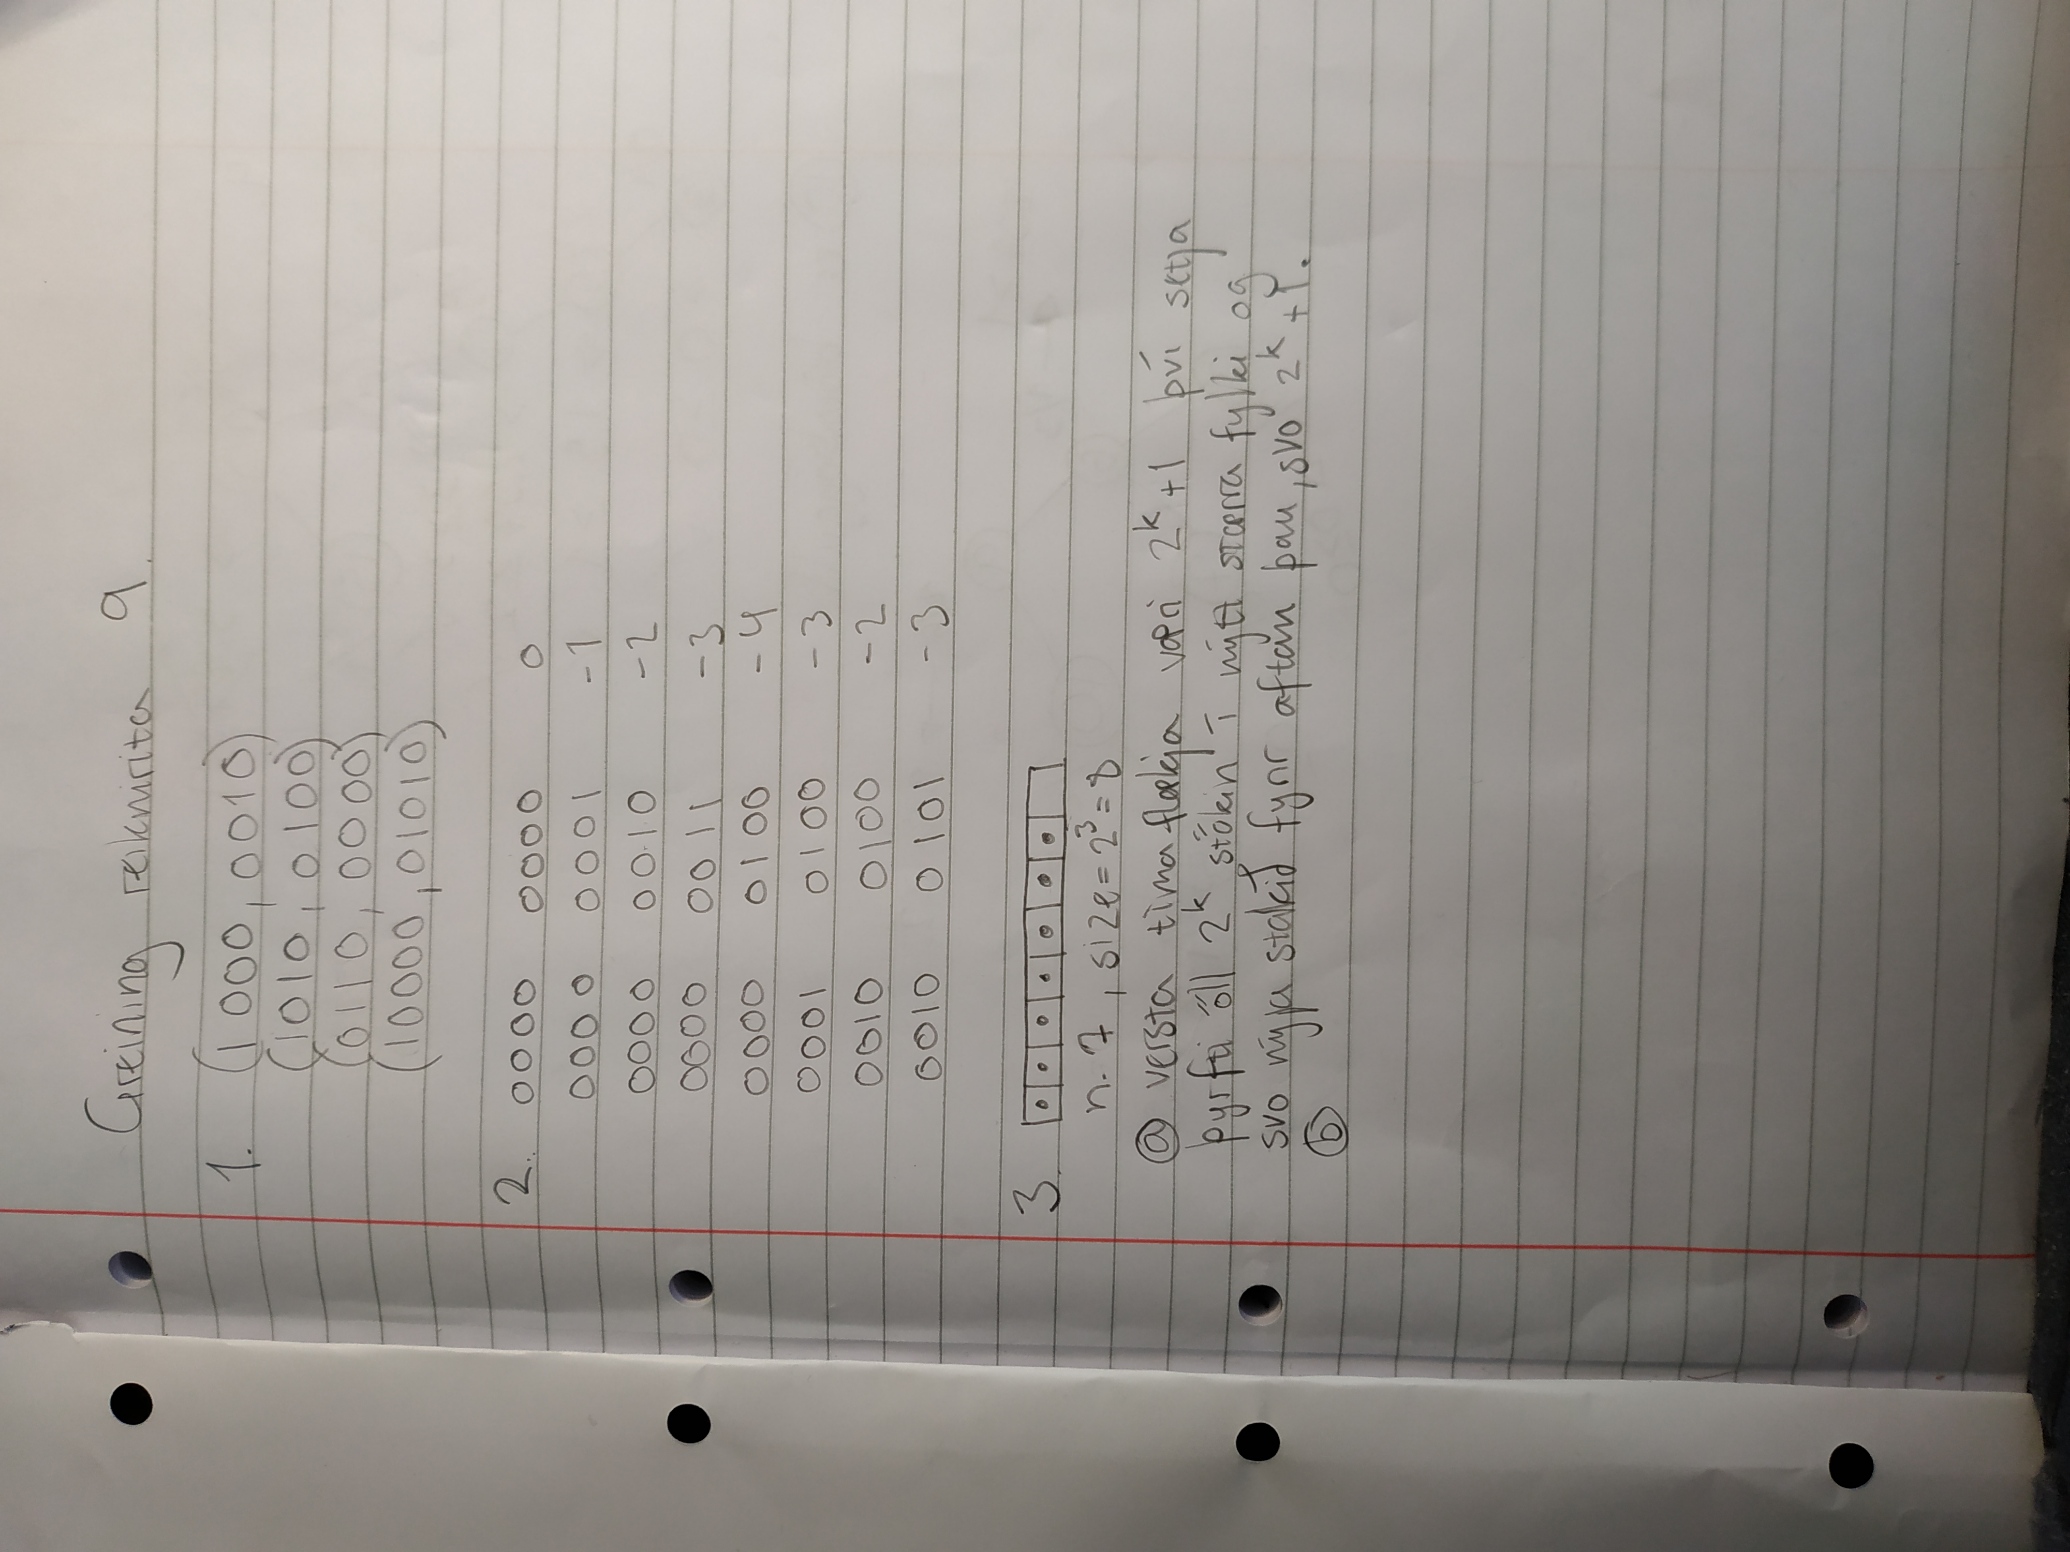 Greining reiknirita 9.
1. (1000, 0010)
(1010, 0100)
(0110, 0000)
(10000, 01010)
2. 0000 0000 0
0000 0001 -1
0000 0010 -2
0000 0011 -3
0000 0100 -4
0001 0100 -3
0010 0100 -2
0010 0101 -3
3.
n. 7, size = 2³ = 8
ⓐ versta tíma flækja væri 2ᵏ + 1 því setja
þyrfti öll 2ᵏ stökin í nýtt stærra fylki og
svo nýja stakið fyrir aftan þau, svo 2ᵏ + 1.
ⓑ